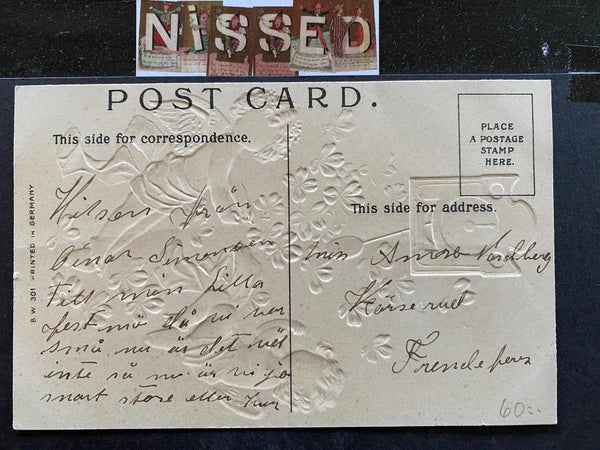 NiSSED
POST CARD.
This side for correspondence.
PLACE
A POSTAGE
STAMP
HERE.
This side for address.
B.W. 301 PRINTED IN GERMANY
Hilsen från
Einar Simonsen
Till min lilla
fest mö då vi var
små nu är det väl
inte så nu är vi jo
snart store eller hur
Miss Anna Nordberg
Kårserud
60:-